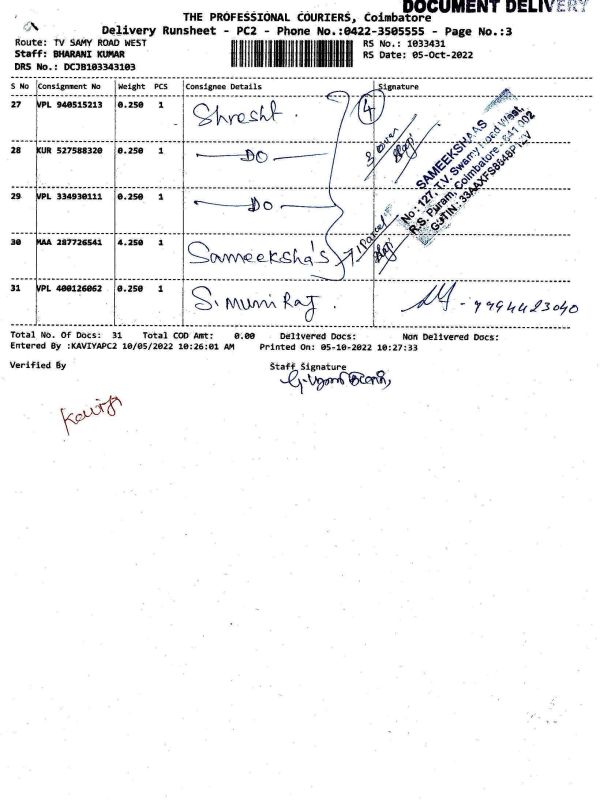 DOCUMENT DELIVERY
THE PROFESSIONAL COURIERS, Coimbatore
Delivery Runsheet - PC2 - Phone No.:0422-3505555 - Page No.:3
Route: TV SAMY ROAD WEST RS No.: 1033431
Staff: BHARANI KUMAR RS Date: 05-Oct-2022
DRS No.: DCJB103343103
S No Consignment No Weight PCS Consignee Details Signature
27 VPL 940515213 0.250 1 Shresht. 4
28 KUR 527588320 0.250 1 DO 3 cover
29 VPL 334930111 0.250 1 DO
30 MAA 287726541 4.250 1 Sameeksha's 1 Parcel
SAMEEKSHAAS
No: 127, T.V. Swamy Road West,
R.S. Puram, Coimbatore - 641 002
GSTIN:
31 VPL 400126062 0.250 1 S. muni Raj. - 9994423040
Total No. Of Docs: 31 Total COD Amt: 0.00 Delivered Docs: Non Delivered Docs:
Entered By :KAVIYAPC2 10/05/2022 10:26:01 AM Printed On: 05-10-2022 10:27:33
Verified By Staff Signature
Kaviya